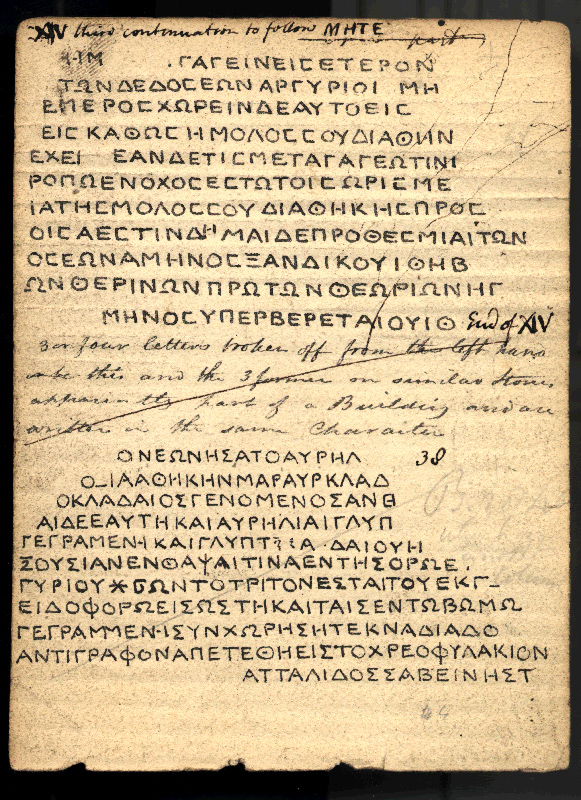 XIV third continuation to follow ΜΗΤΕ
part
ΙΜ .ΓΑΓΕΙΝΕΙϹΕΤΕΡΟΝ
ΤΩΝΔΕΔΟϹΕΩΝΑΡΓΥΡΙΟΙ ΜΗ
ΕΜΕΡΟϹΧΩΡΕΙΝΔΕΑΥΤΟΕΙϹ
ΕΙϹ ΚΑΘΩϹΗΜΟΛΟϹϹΟΥΔΙΑΘΗΝ
ΕΧΕΙ ΕΑΝΔΕΤΙϹΜΕΤΑΓΑΓΕΩΤΙΝΙ
ΡΟΠΩΕΝΟΧΟϹΕϹΤΩΤΟΙϹΩΡΙϹΜΕ
ΙΑΤΗϹΜΟΛΟϹϹΟΥΔΙΑΘΗΚΗϹΠΡΟϹ
ΟΙϹΑΕϹΤΙΝΔΗΜΑΙΔΕΠΡΟΘΕϹΜΙΑΙΤΩΝ
ΟϹΕΩΝΑΜΗΝΟϹΞΑΝΔΙΚΟΥΙΘΗΒ
ΩΝΘΕΡΙΝΩΝΠΡΩΤΩΝΘΕΩΡΙΩΝΗΓ
ΜΗΝΟϹΥΠΕΡΒΕΡΕΤΑΙΟΥΙΘ End of XIV
3 or four letters broken off from the left hand
this and the 3 former on similar Stones
part of a Building and are
written in the same Character
ΟΝΕΩΝΗΣΑΤΟΑΥΡΗΛ 38
Ο_ΙΑΑΘΗΚΗΝΜΑΡΑΥΡΚΛΑΔ
ΟΚΛΑΔΑΙΟΣΓΕΝΟΜΕΝΟΣΑΝΘ
ΑΙΔΕΕΑΥΤΗΚΑΙΑΥΡΗΛΙΑΙΓΛΥΠ
ΓΕΓΡΑΜΕΝΗΚΑΙΓΛΥΠΤ Α.ΔΑΙΟΥΗ
ΣΟΥΣΙΑΝΕΝΘΑΨΑΙΤΙΝΑΕΝΤΗΣΟΡΩΕ.
ΓΥΡΙΟΥ ΩΝΤΟΤΡΙΤΟΝΕΣΤΑΙΤΟΥΕΚΓ_
ΕΙΔΟΦΟΡΩΕΙΣΩΣΤΗΚΑΙΤΑΙΣΕΝΤΩΒΩΜΩ
ΓΕΓΡΑΜΜΕΝΗΣΥΝΧΩΡΗΣΗΤΕΚΝΑΔΙΑΔΟ
ΑΝΤΙΓΡΑΦΟΝΑΠΕΤΕΘΗΕΙΣΤΟΧΡΕΟΦΥΛΑΚΙΟΝ
ΑΤΤΑΛΙΔΟΣΣΑΒΕΙΝΗΣΤ
64